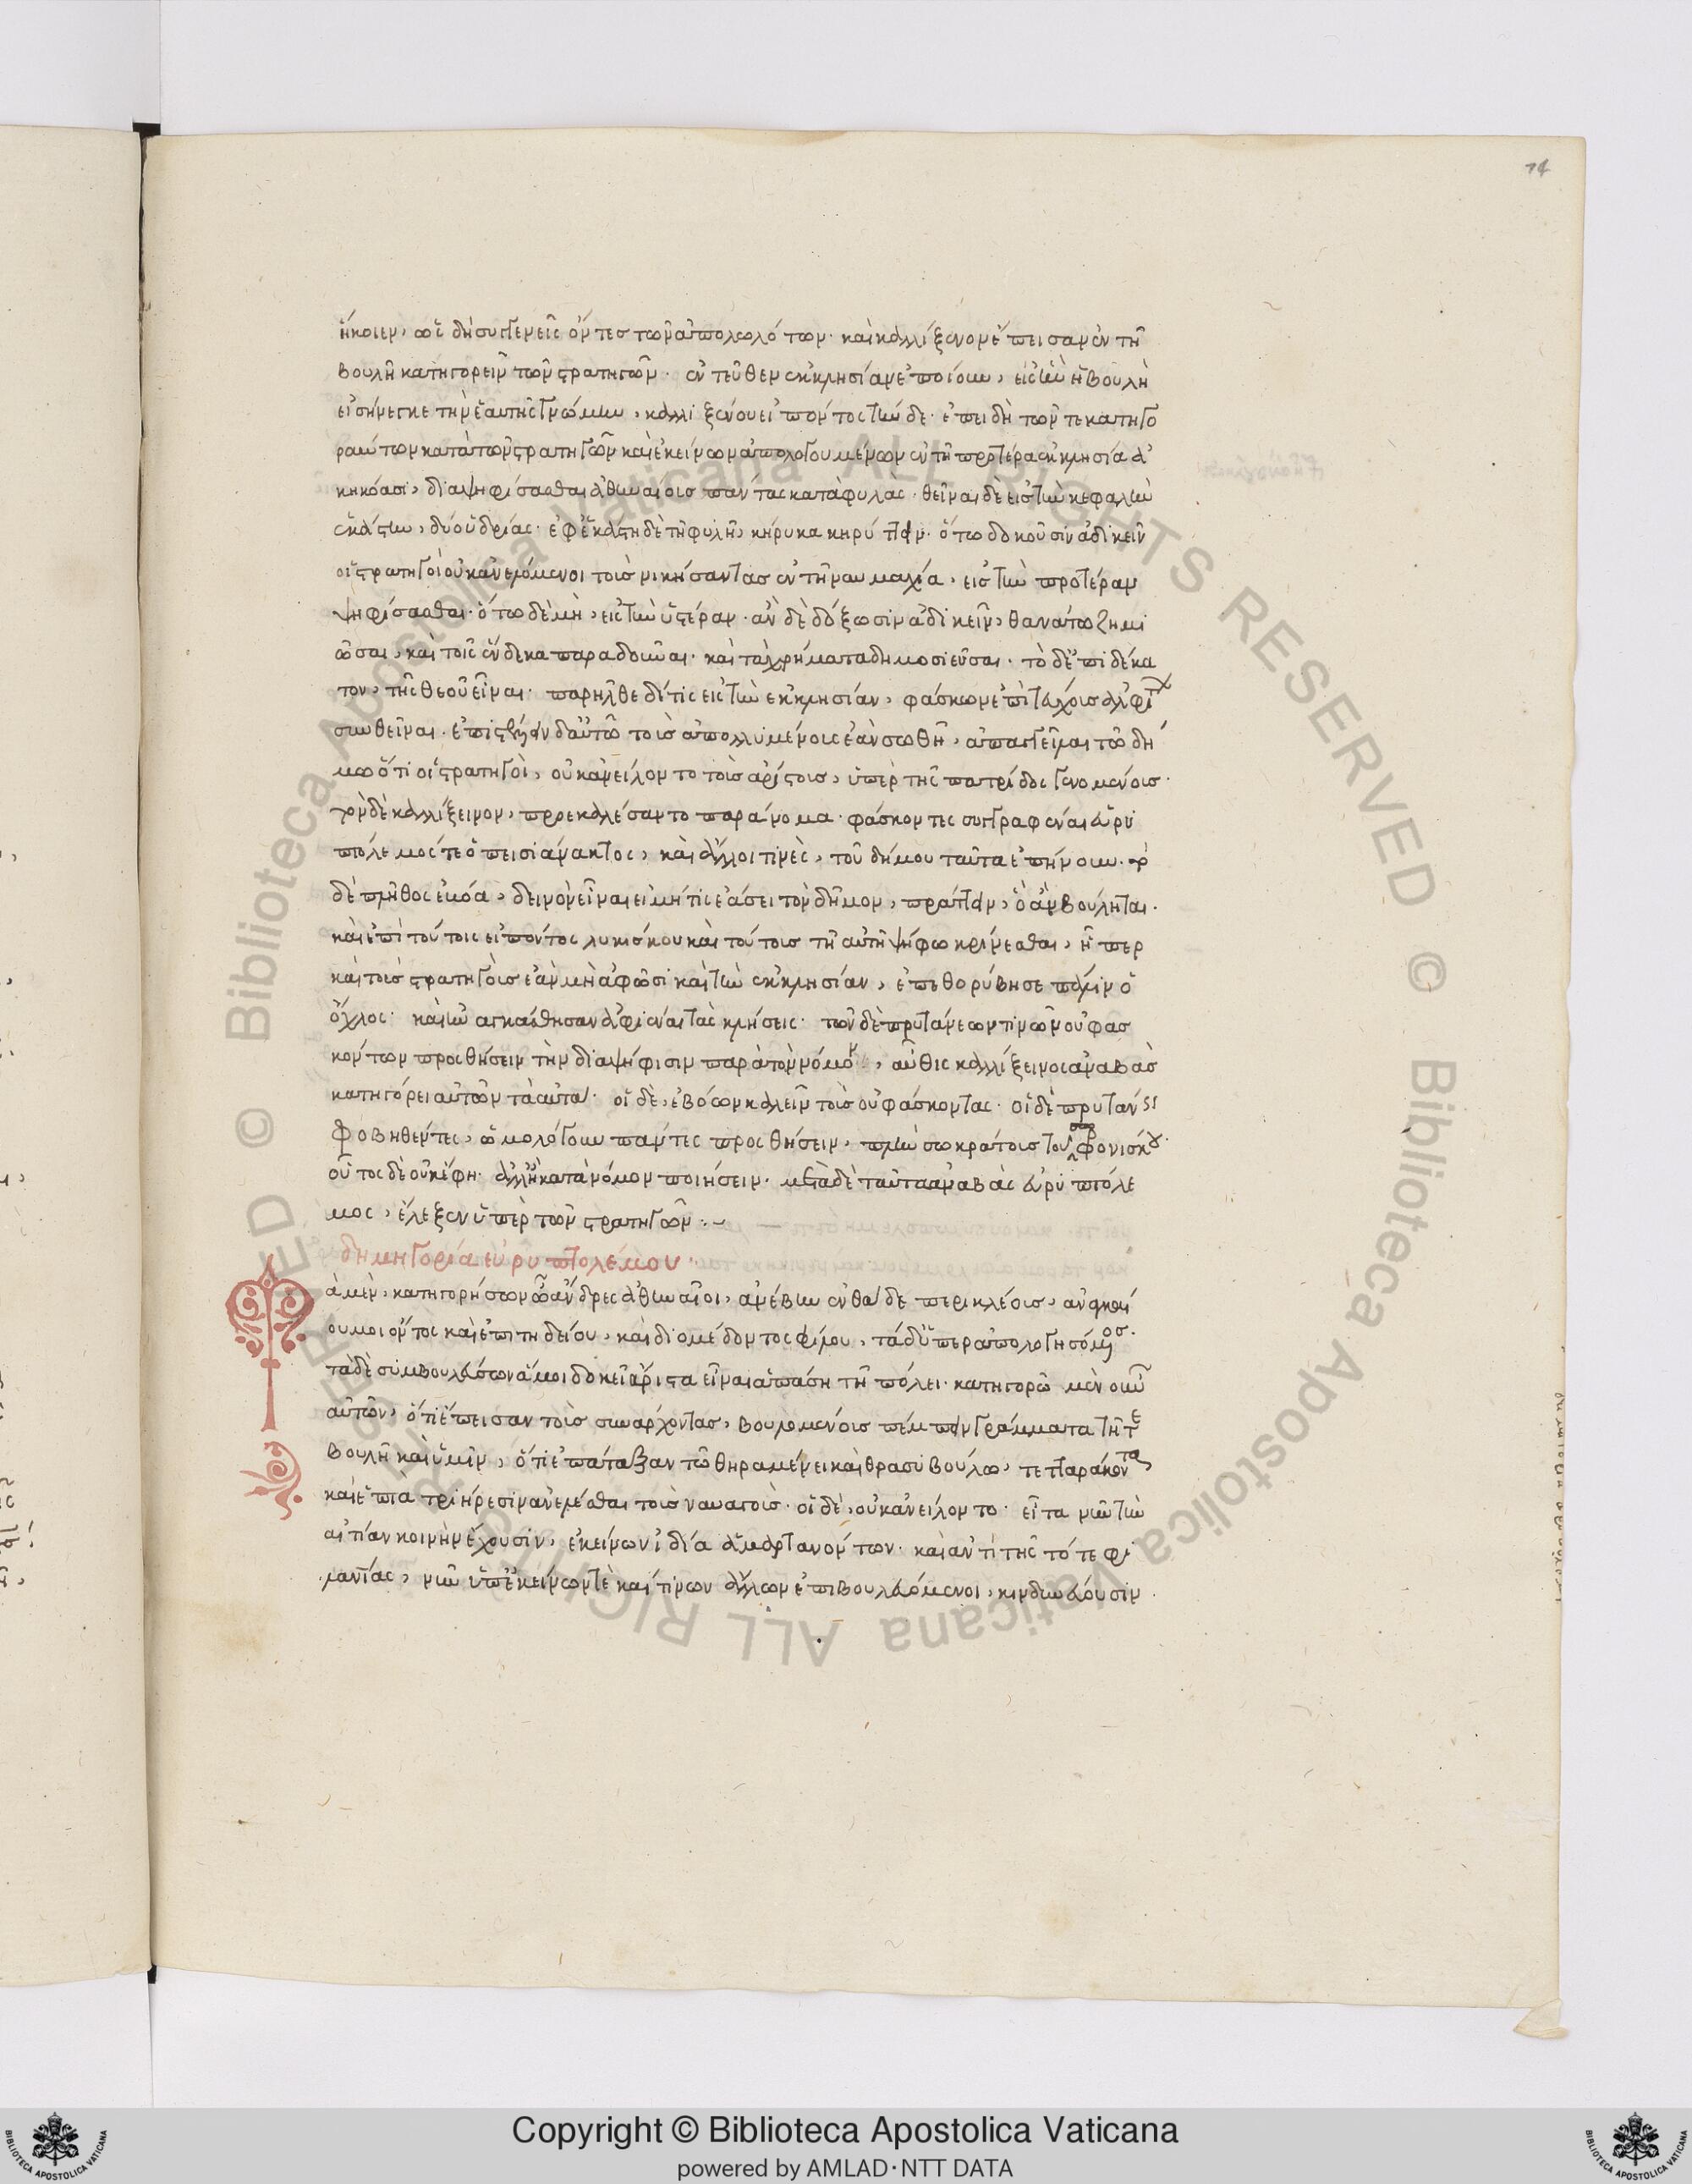 74
ἥκοιεν, ὡς δὴ συγγενεῖς ὄντες τῶν ἀπολωλότων. καὶ καλλίξενον ἔπεισαν ἐν τῆ
βουλῆ κατηγορεῖν τῶν στρατηγῶν. ἐντεῦθεν ἐκκλησίαν ἐποίουν, εἰς ἣν ἡ βουλὴ
εἰσήνεγκε τὴν ἑαυτῆς γνώμην, καλλιξένου εἰπόντος τήνδε. ἐπειδὴ τῶν τε κατηγο
ρούντων κατὰ τῶν στρατηγῶν καὶ ἐκείνων ἀπολογουμένων ἐν τῆ προτέρα ἐκκλησία ἀ
κηκόασι, διαψηφίσασθαι ἀθηναίους πάντας κατὰ φυλάς. θεῖναι δὲ εἰς τὴν κεφαλὴν
ἑκάστην, δύο ὑδρίας. ἐφ ἑκάστη δὲ τῆ φυλῆ, κήρυκα κηρύττειν. ὅτω δοκοῦσιν ἀδικεῖν
οἱ στρατηγοὶ οὐκ ἀνελόμενοι τοὺς νικήσαντας ἐν τῆ ναυμαχία, εἰς τὴν προτέραν
ψηφίσασθαι. ὅτω δὲ μὴ, εἰς τὴν ὑστέραν. ἂν δὲ δόξωσιν ἀδικεῖν, θανάτω ζημι
ῶσαι, καὶ τοῖς ἕνδεκα παραδοῦναι. καὶ τὰ χρήματα δημοσιεῦσαι. τὸ δ ἐπιδέκα
τον, τῆς θεοῦ εἶναι. παρῆλθε δέ τις εἰς τὴν ἐκκλησίαν, φάσκων ἐπὶ τεύχους ἀλφίτων
σωθεῖναι. ἐπιστέλλειν δ αὐτῶ τοὺς ἀπολλυμένους ἐὰν σωθῆ, ἀπαγγεῖλαι τῶ δή
μω ὅτι οἱ στρατηγοὶ, οὐκ ἀνείλοντο τοὺς ἀρίστους, ὑπὲρ τῆς πατρίδος γενομένους.
τὸν δὲ καλλίξεινον, προεκαλέσαντο παράνομα. φάσκοντες συγγραφέναι εὐρυ
πόλεμός τε ὁ πεισιάνακτος, καὶ ἄλλοι τινὲς, τοῦ δήμου ταῦτα ἐπήνουν. τὸ
δὲ πλῆθος ἐβόα, δεινὸν εἶναι εἰ μή τις ἐάσει τὸν δῆμον, πράττειν, ὃ ἂν βούληται.
καὶ ἐπὶ τούτοις εἰπόντος λυκίσκου καὶ τούτους τῆ αὐτῆ ψήφω κρίνεσθαι, ἧπερ
καὶ τοὺς στρατηγοὺς ἐὰν μὴ ἀφῶσι καὶ τὴν ἐκκλησίαν, ἐπεθορύβησε πάλιν ὁ
ὄχλος. καὶ ἠναγκάσθησαν ἀφιέναι τὰς κλήσεις. τῶν δὲ πρυτάνεων τινῶν οὐ φασ
κόντων προσθήσειν τὴν διαψήφισιν παρὰ τὸν νόμον, αὖθις καλλίξεινος ἀναβὰς
κατηγόρει αὐτῶν τὰ αὐτά. οἱ δὲ, ἐβόων καλεῖν τοὺς οὐ φάσκοντας. οἱ δὲ πρυτάνεις
φοβηθέντες, ὡμολόγουν πάντες προσθήσειν, πλὴν σωκράτους τοῦ σωφρονίσκου.
οὗτος δὲ οὐκ ἔφη. ἀλλ ἢ κατὰ νόμον ποιήσειν. μετὰ δὲ ταῦτα ἀναβὰς εὐρυπτόλε
μος, ἔλεξεν ὑπὲρ τῶν στρατηγῶν :~
δημηγορία εὐρυπτολέμου.
τὰ μὲν, κατηγορήσων ὦ ἄνδρες ἀθηναῖοι, ἀνέβην ἐνθάδε περικλέους, ἀναγκαί
ου μοι ὄντος καὶ ἐπιτηδείου, καὶ διομέδοντος φίλου, τὰ δ ὑπεραπολογησόμενος.
τὰ δὲ συμβουλεύσων ἅ μοι δοκεῖ ἄριστα εἶναι ἁπάση τῆ πόλει. κατηγορῶ μὲν οὖν
αὐτῶν, ὅτι ἔπεισαν τοὺς συνάρχοντας, βουλομένους πέμπειν γράμματα τῆ τε
βουλῆ καὶ ὑμῖν, ὅτι ἐπέταξαν τῶ θηραμένει καὶ θρασυβούλω, τετταράκοντα
καὶ ἑπτὰ τριήρεσιν ἀνελέσθαι τοὺς ναυαγούς. οἱ δὲ, οὐκ ἀνείλοντο. εἶτα νῦν τὴν
αἰτίαν κοινὴν ἔχουσιν, ἐκείνων ἰδία ἁμαρτανόντων. καὶ ἀντὶ τῆς τότε φι
λανίας, νῦν ὑπ ἐκείνων τὲ καί τινων ἄλλων ἐπιβουλευόμενοι, κινδυνεύουσιν.
Copyright © Biblioteca Apostolica Vaticana
powered by AMLAD·NTT DATA